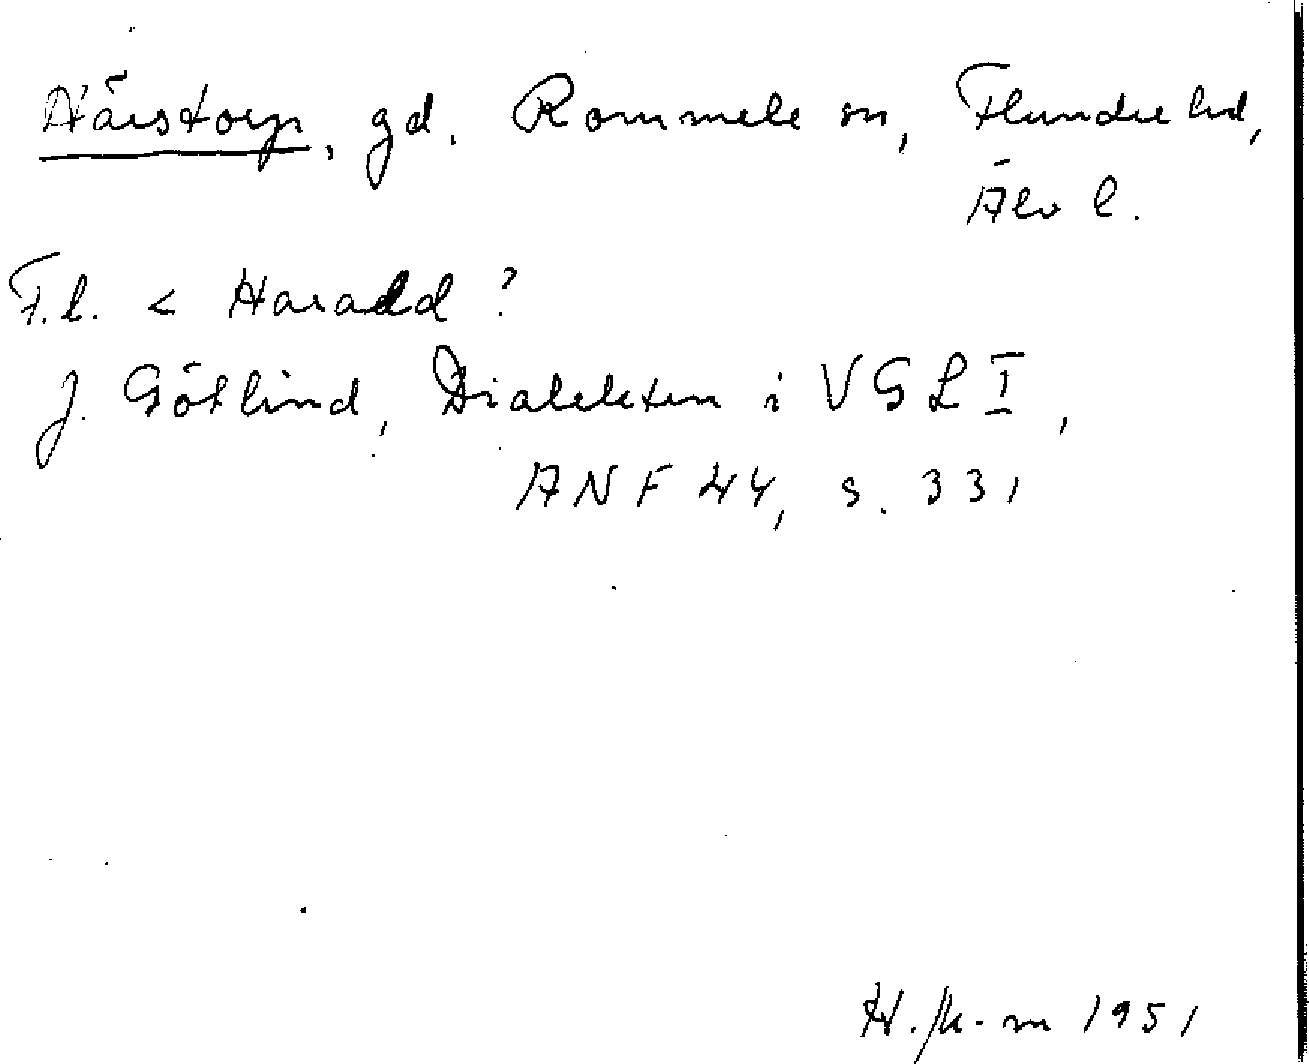 Härstorp, gd. Rommele sn, Flundre hd,
Älv l.
F.l. < Harald ?
J. Götlind, Dialekten i VGL I,
ANF 44, s. 331
1951